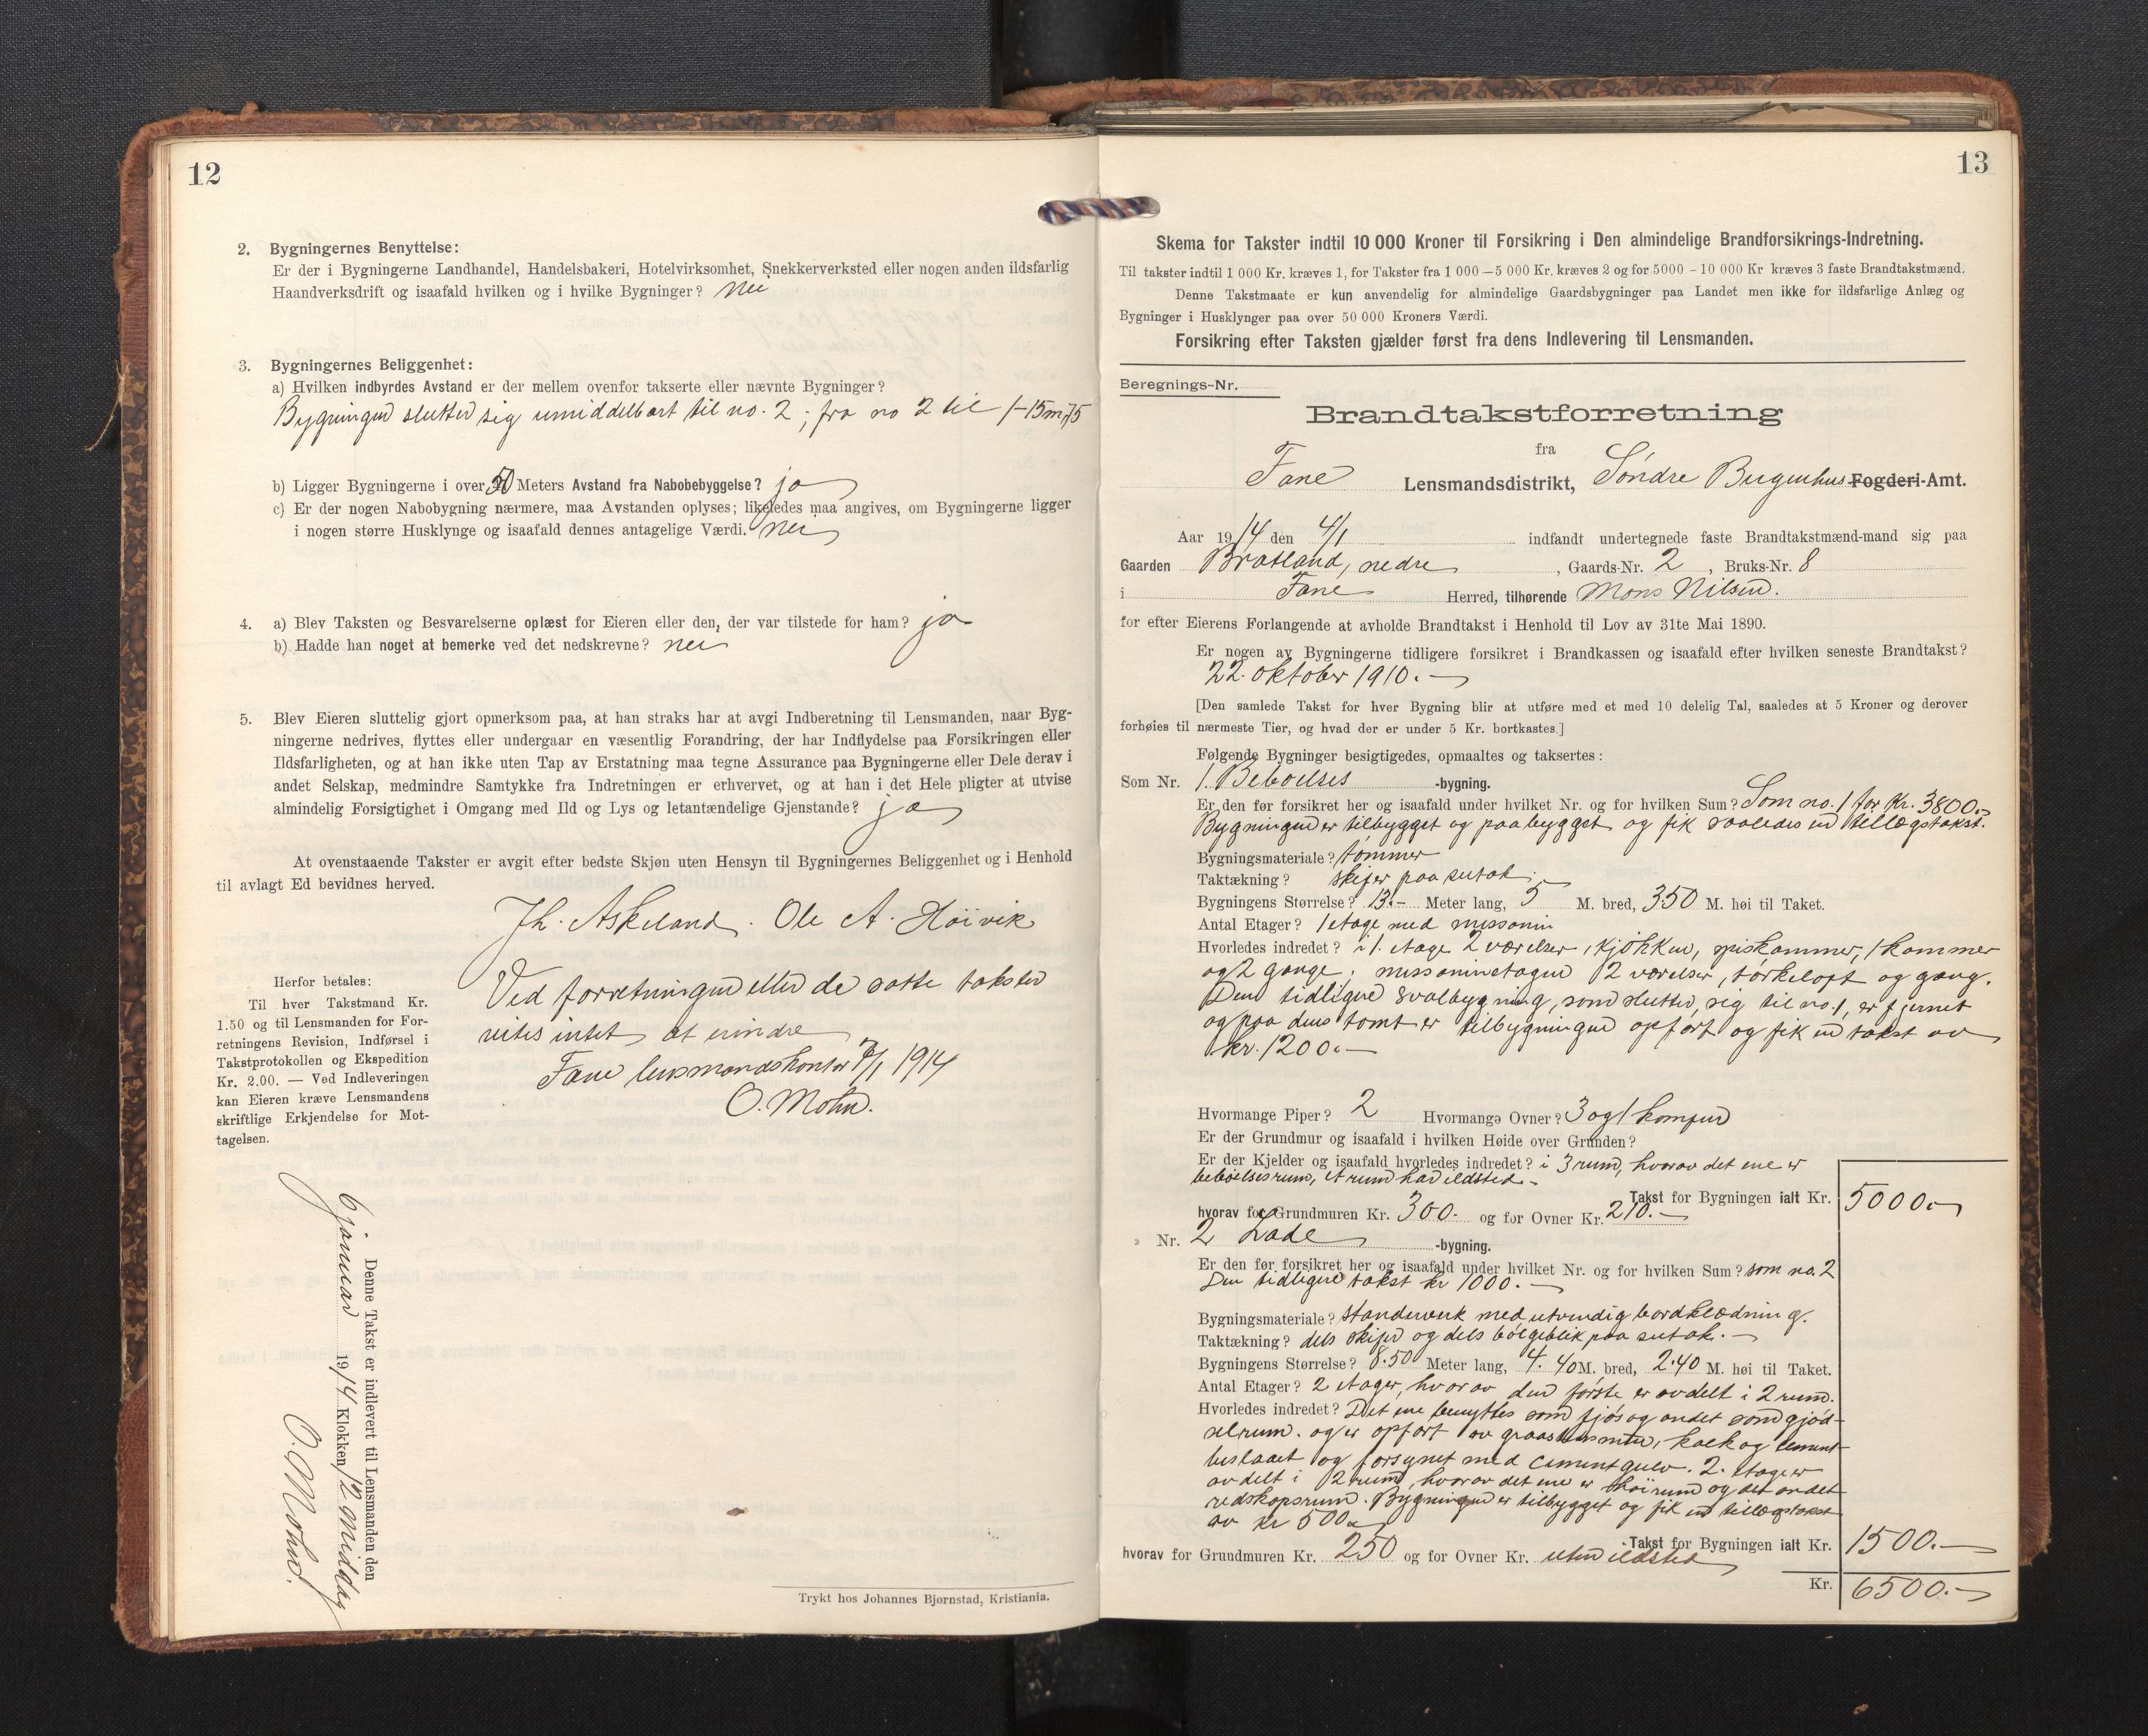 12
2. Bygningernes Benyttelse:
Er der i Bygningerne Landhandel, Handelsbakeri, Hotelvirksomhet, Snekkerverksted eller nogen anden ildsfarlig
Haandverksdrift og isaafald hvilken og i hvilke Bygninger? nei
3. Bygningernes Beliggenhet:
a) Hvilken indbyrdes Avstand er der mellem ovenfor takserte eller nævnte Bygninger?
Bygningen slutter sig umiddelbart til no. 2; fra no 2 til 1-15m,75
b) Ligger Bygningerne i over 50 Meters Avstand fra Nabobebyggelse? ja
c) Er der nogen Nabobygning nærmere, maa Avstanden oplyses; likeledes maa angives, om Bygningerne ligger
i nogen større Husklynge og isaafald dennes antagelige Værdi. nei
4. a) Blev Taksten og Besvarelserne oplæst for Eieren eller den, der var tilstede for ham? ja
b) Hadde han noget at bemerke ved det nedskrevne? nei
5. Blev Eieren sluttelig gjort opmerksom paa, at han straks har at avgi Indberetning til Lensmanden, naar Byg-
ningerne nedrives, flyttes eller undergaar en væsentlig Forandring, der har Indflydelse paa Forsikringen eller
Ildsfarligheten, og at han ikke uten Tap av Erstatning maa tegne Assurance paa Bygningerne eller Dele derav i
andet Selskap, medmindre Samtykke fra Indretningen er erhvervet, og at han i det Hele pligter at utvise
almindelig Forsigtighet i Omgang med Ild og Lys og letantændelige Gjenstande? ja
At ovenstaaende Takster er avgit efter bedste Skjøn uten Hensyn til Bygningernes Beliggenhet og i Henhold
til avlagt Ed bevidnes herved.
Jh. Askeland. Ole A. Høivik
Herfor betales:
Til hver Takstmand Kr.
1.50 og til Lensmanden for For-
retningens Revision, Indførsel i
Takstprotokollen og Ekspedition
Kr. 2.00. — Ved Indleveringen
kan Eieren kræve Lensmandens
skriftlige Erkjendelse for Mot-
tagelsen.
Ved forretningen eller de satte takster
vites intet at erindre
Fane lensmandskontor 7/1 1914
O. Mohn.
Denne Takst er indlevert til Lensmanden den
6 januar 1914 Klokken 12 middag
O. Mohn.
Trykt hos Johannes Bjørnstad, Kristiania.
13
Skema for Takster indtil 10 000 Kroner til Forsikring i Den almindelige Brandforsikrings-Indretning.
Til takster indtil 1 000 Kr. kræves 1, for Takster fra 1 000 — 5 000 Kr. kræves 2 og for 5000 - 10 000 Kr kræves 3 faste Brandtakstmænd.
Denne Takstmaate er kun anvendelig for almindelige Gaardsbygninger paa Landet men ikke for ildsfarlige Anlæg og
Bygninger i Husklynger paa over 50 000 Kroners Værdi.
Forsikring efter Taksten gjælder først fra dens Indlevering til Lensmanden.
Beregnings-Nr.
Brandtakstforretning
fra
Fane Lensmandsdistrikt, Søndre Bergenhus Fogderi-Amt.
Aar 1914 den 4/1 indfandt undertegnede faste Brandtakstmænd-mand sig paa
Gaarden Bratland, nedre, Gaards-Nr. 2, Bruks-Nr. 8
i Fane Herred, tilhørende Mons Nilsen.
for efter Eierens Forlangende at avholde Brandtakst i Henhold til Lov av 31te Mai 1890.
Er nogen av Bygningerne tidligere forsikret i Brandkassen og isaafald efter hvilken seneste Brandtakst?
22. oktober 1910. —
[Den samlede Takst for hver Bygning blir at utføre med et med 10 delelig Tal, saaledes at 5 Kroner og derover
forhøies til nærmeste Tier, og hvad der er under 5 Kr. bortkastes.]
Følgende Bygninger besigtigedes, opmaaltes og taksertes:
Som Nr. 1. Beboelses -bygning.
Er den før forsikret her og isaafald under hvilket Nr. og for hvilken Sum? Som no. 1 for Kr. 3800.-
Bygningen er tilbygget og paabygget og fik saaledes en tillægstakst.
Bygningsmateriale? tømmer
Taktækning? skifer paa sutak.
Bygningens Størrelse? 13.- Meter lang, 5 M. bred, 3.50 M. høi til Taket.
Antal Etager? 1 etage med messanin
Hvorledes indredet? i 1. etage 2 værelser, kjøkken, spiskammer, 1 kammer
og 2 gange; messaninetagen 2 værelser, tørkeloft og gang.
Den tidligere svalbygning, som slutter sig til no. 1, er fjernet
og paa dens tomt er tilbygningen opført og fik en takst av
kr. 1200.—
Hvormange Piper? 2 Hvormange Ovner? 3 og 1 komfur
Er der Grundmur og isaafald i hvilken Høide over Grunden?
Er der Kjelder og isaafald hvorledes indredet? i 3 rum, hvorav det ene er
beboelsesrum, et rum har ildsted.-
Takst for Bygningen ialt Kr. 5000.-
hvorav for Grundmuren Kr. 300.- og for Ovner Kr. 210.—
Nr. 2 Lade -bygning.
Er den før forsikret her og isaafald under hvilket Nr. og for hvilken Sum? som no. 2
Den tidligere takst kr 1000.—
Bygningsmateriale? standverk med utvendig bordklædning.
Taktækning? dels skifer og dels bølgeblik paa sutak.—
Bygningens Størrelse? 8.50 Meter lang, 4.40 M. bred, 2.40 M. høi til Taket.
Antal Etager? 2 etager, hvorav den første er avdelt i 2 rum.
Hvorledes indredet? Det ene benyttes som fjøs og andet som gjød-
selrum. og er opført av graastensmur, kalk og cement-
beslaaet og forsynet med cementgulv. 2. etage er
avdelt i 2 rum, hvorav det ene er høirum og det andet
redskapsrum. Bygningen er tilbygget og fik en tillægstakst
av kr 500.-
Takst for Bygningen ialt Kr. 1500.—
hvorav for Grundmuren Kr. 250 og for Ovner Kr. uten ildsted
Kr. 6500.—